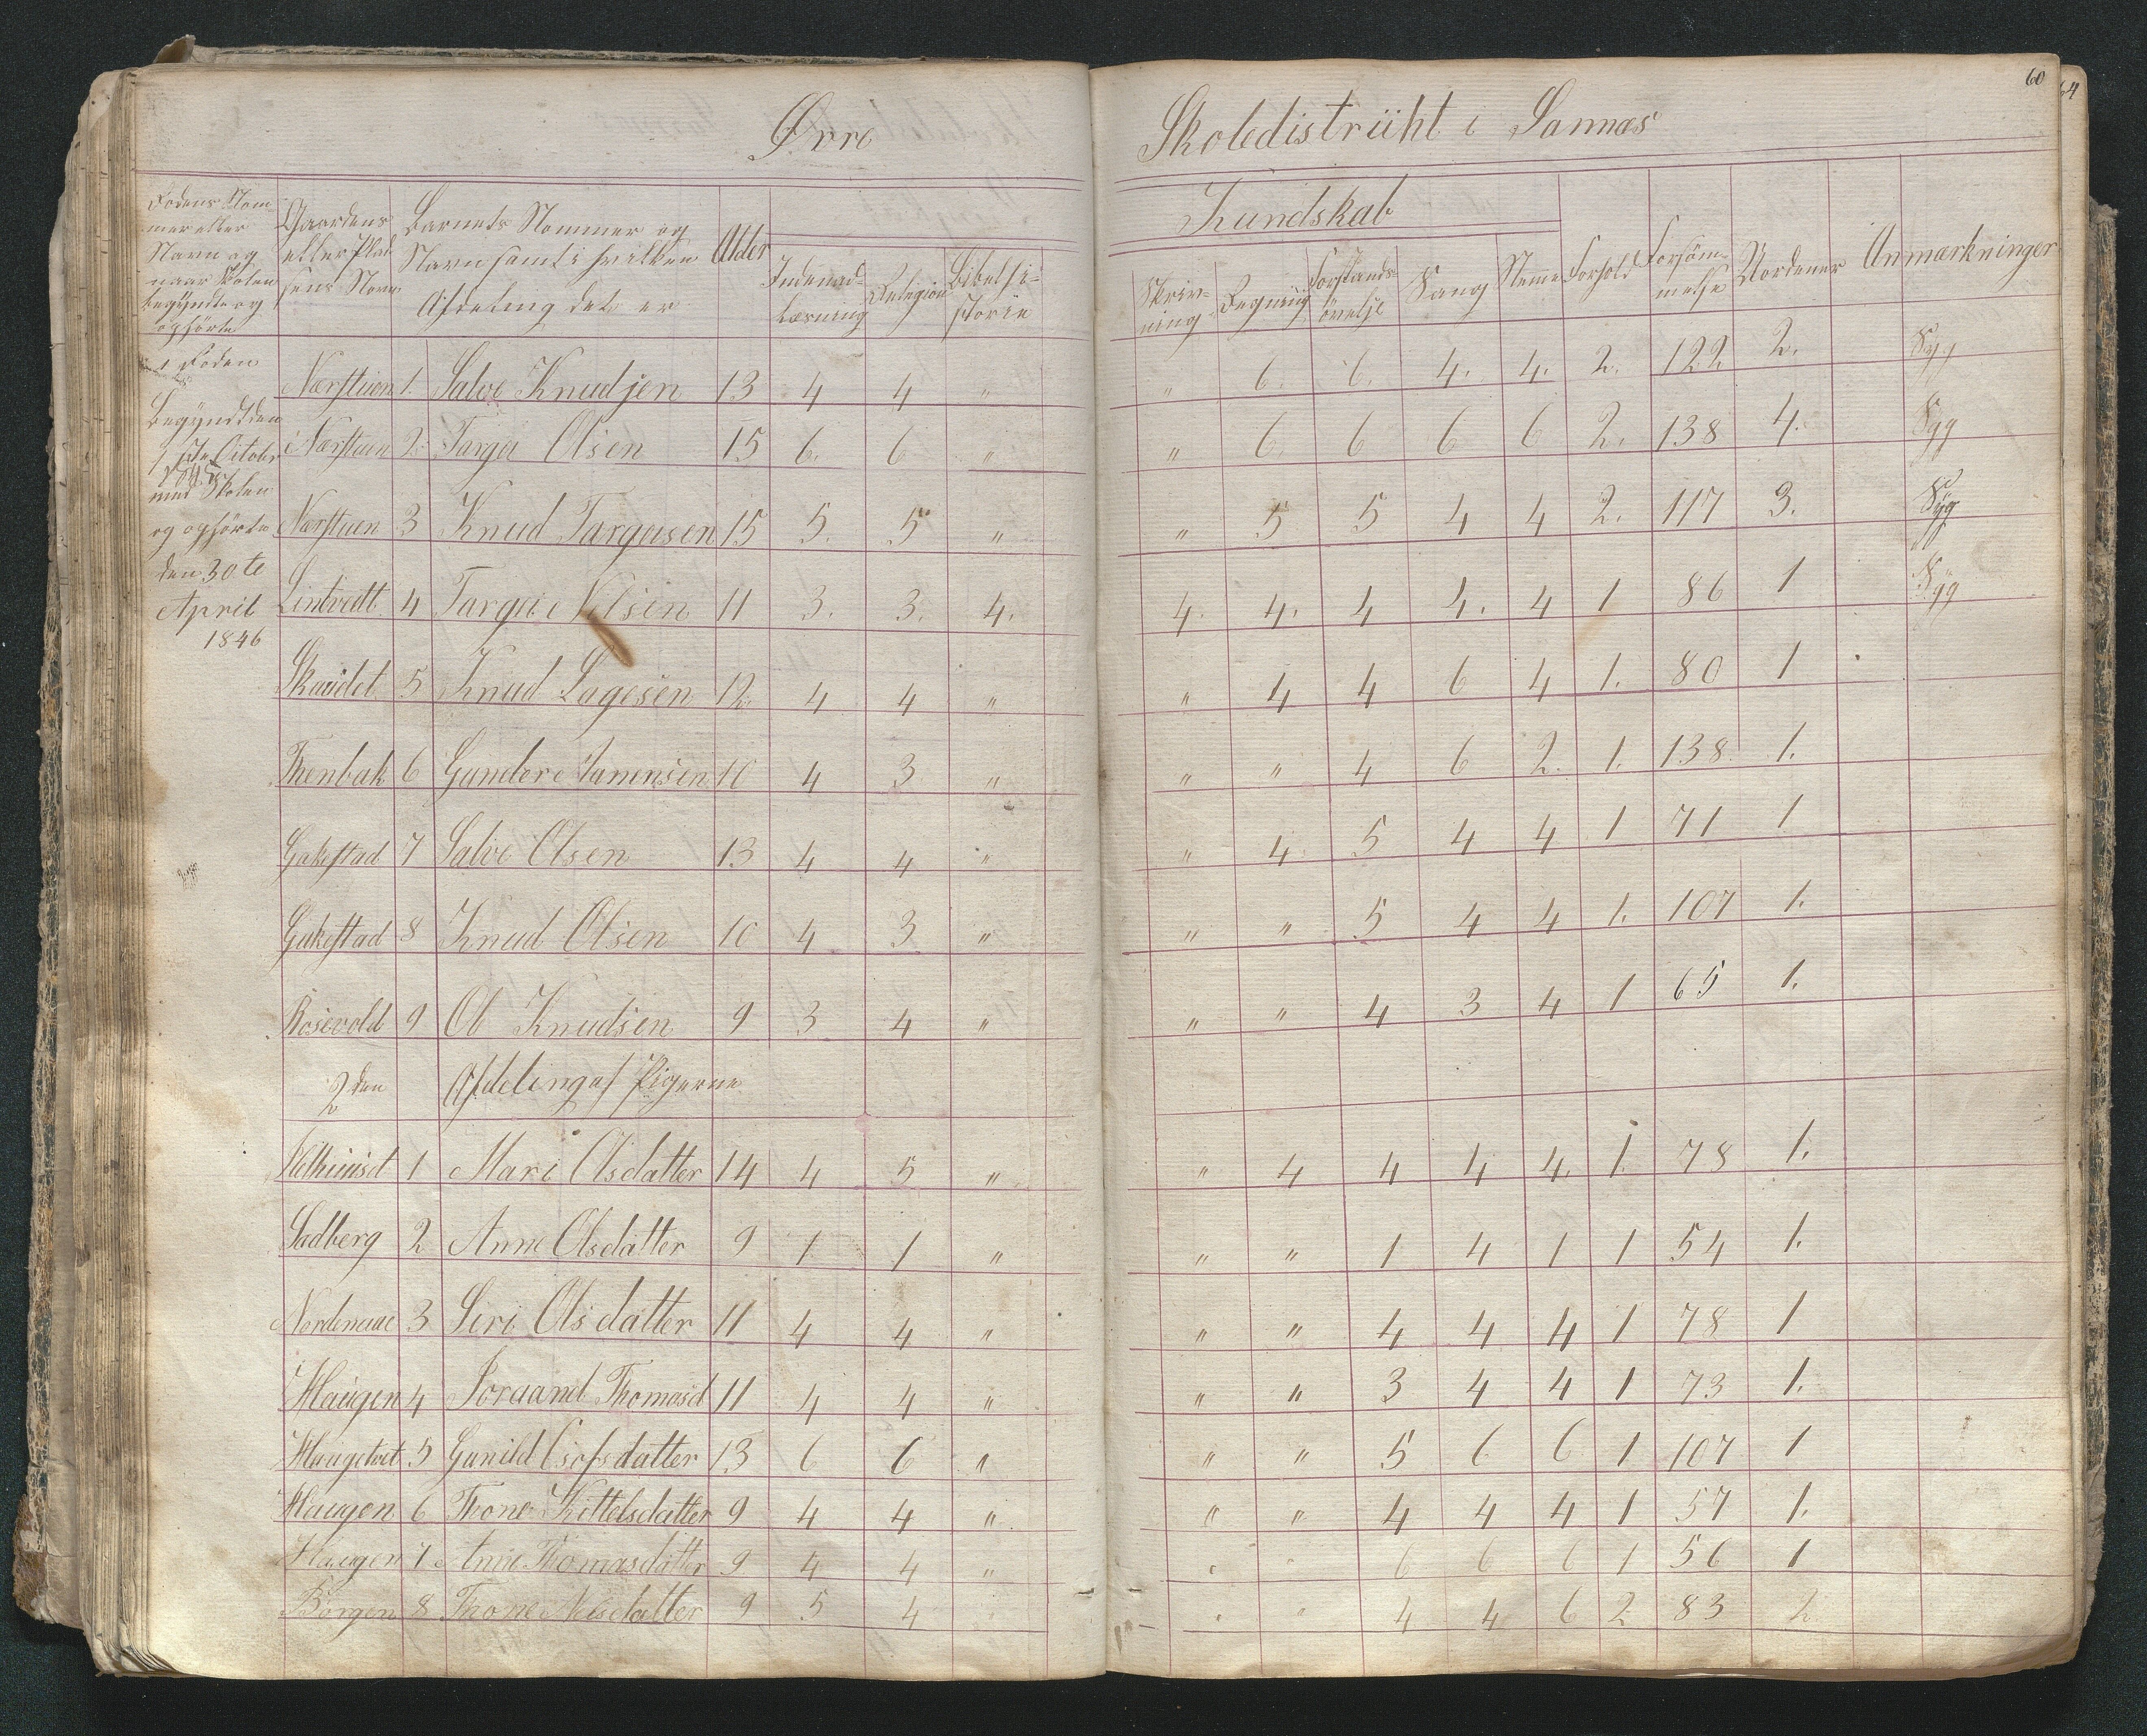 60
64
Øvre Skoledistriikt i Sannæs
Rodens Nom-
mer eller
Navn og
naar Skolen
begyndte og
ophørte
Gaardens
eller Plad
sens Navn
Barnets Nommer og
Navn samt i hvilken
Afdeling det er
Alder
Kundskab
Indenad-
læsning
Relegion
Bibelhi-
storie
Skriv-
ning
Regning
Forstands-
øvelse
Sang
Nemme
Forhold
Forsøm-
melse
Nordener
Anmærkninger
1 Roden
Begyndt den
1ste October
1845
med Skolen
og ophørte
den 30te
April
1846
Nærstuen 1. Salve Knudsen 13 4 4 " " 6. 6. 4. 4. 2. 122 2. Syg
Nærstuen 2. Targei Olsen 15 6. 6 " " 6. 6 6 6 2. 138 4. Syg
Nærstuen 3 Knud Targeisen 15 5. 5 " " 5 5 4 4 2. 117 3. Syg
Lintvedt 4 Targei Nilsen 11 3. 3. 4. 4. 4. 4 4. 4 1 86 1 Syg
5 Knud Lagesen 12. 4 4 " " 4 4 6 4 1. 80 1
6 Gundere Jamensen 10 4 3 " " " 4 6 2. 1. 138. 1.
Gakestad 7 Salve Olsen 13 4 4 " " 4 5 4 4 1 71 1
Gakestad 8 Knud Olsen 10 4 3 " " " 5 4 4 1. 107 1.
Rosevold 9 Ol Knudsen 9 3 4 " " " 4 3 4 1 65 1.
2den Afdeling af Pigerne
1 Mari Olsdatter 14 4 5 " " 4 4 4 4. 1. 78 1.
Sadberg 2 Anne Olsdatter 9 1 1 " " " 1 4 1 1 54 1.
Nordenaae 3 Siri Olsdatter 11 4 4 " " " 4 4 4 1 78 1
Haugen 4 Joraand Thomasd 11 4 4 " " " 3 4 4 1 73 1.
Haugetvet 5 Gunild datter 13 6 6 " " " 5 6 6 1 107 1
Haugen 6 Thone Kittelsdatter 9 4 4 " " " 4 4 4 1 57 1.
Haugen 7 Anne Thomasdatter 9. 4 4 " " " 6 6 6 1 56 1
Borgen 8 Thone Nelsdatter 9 5 4 " " " 4 4 6 2 83 2